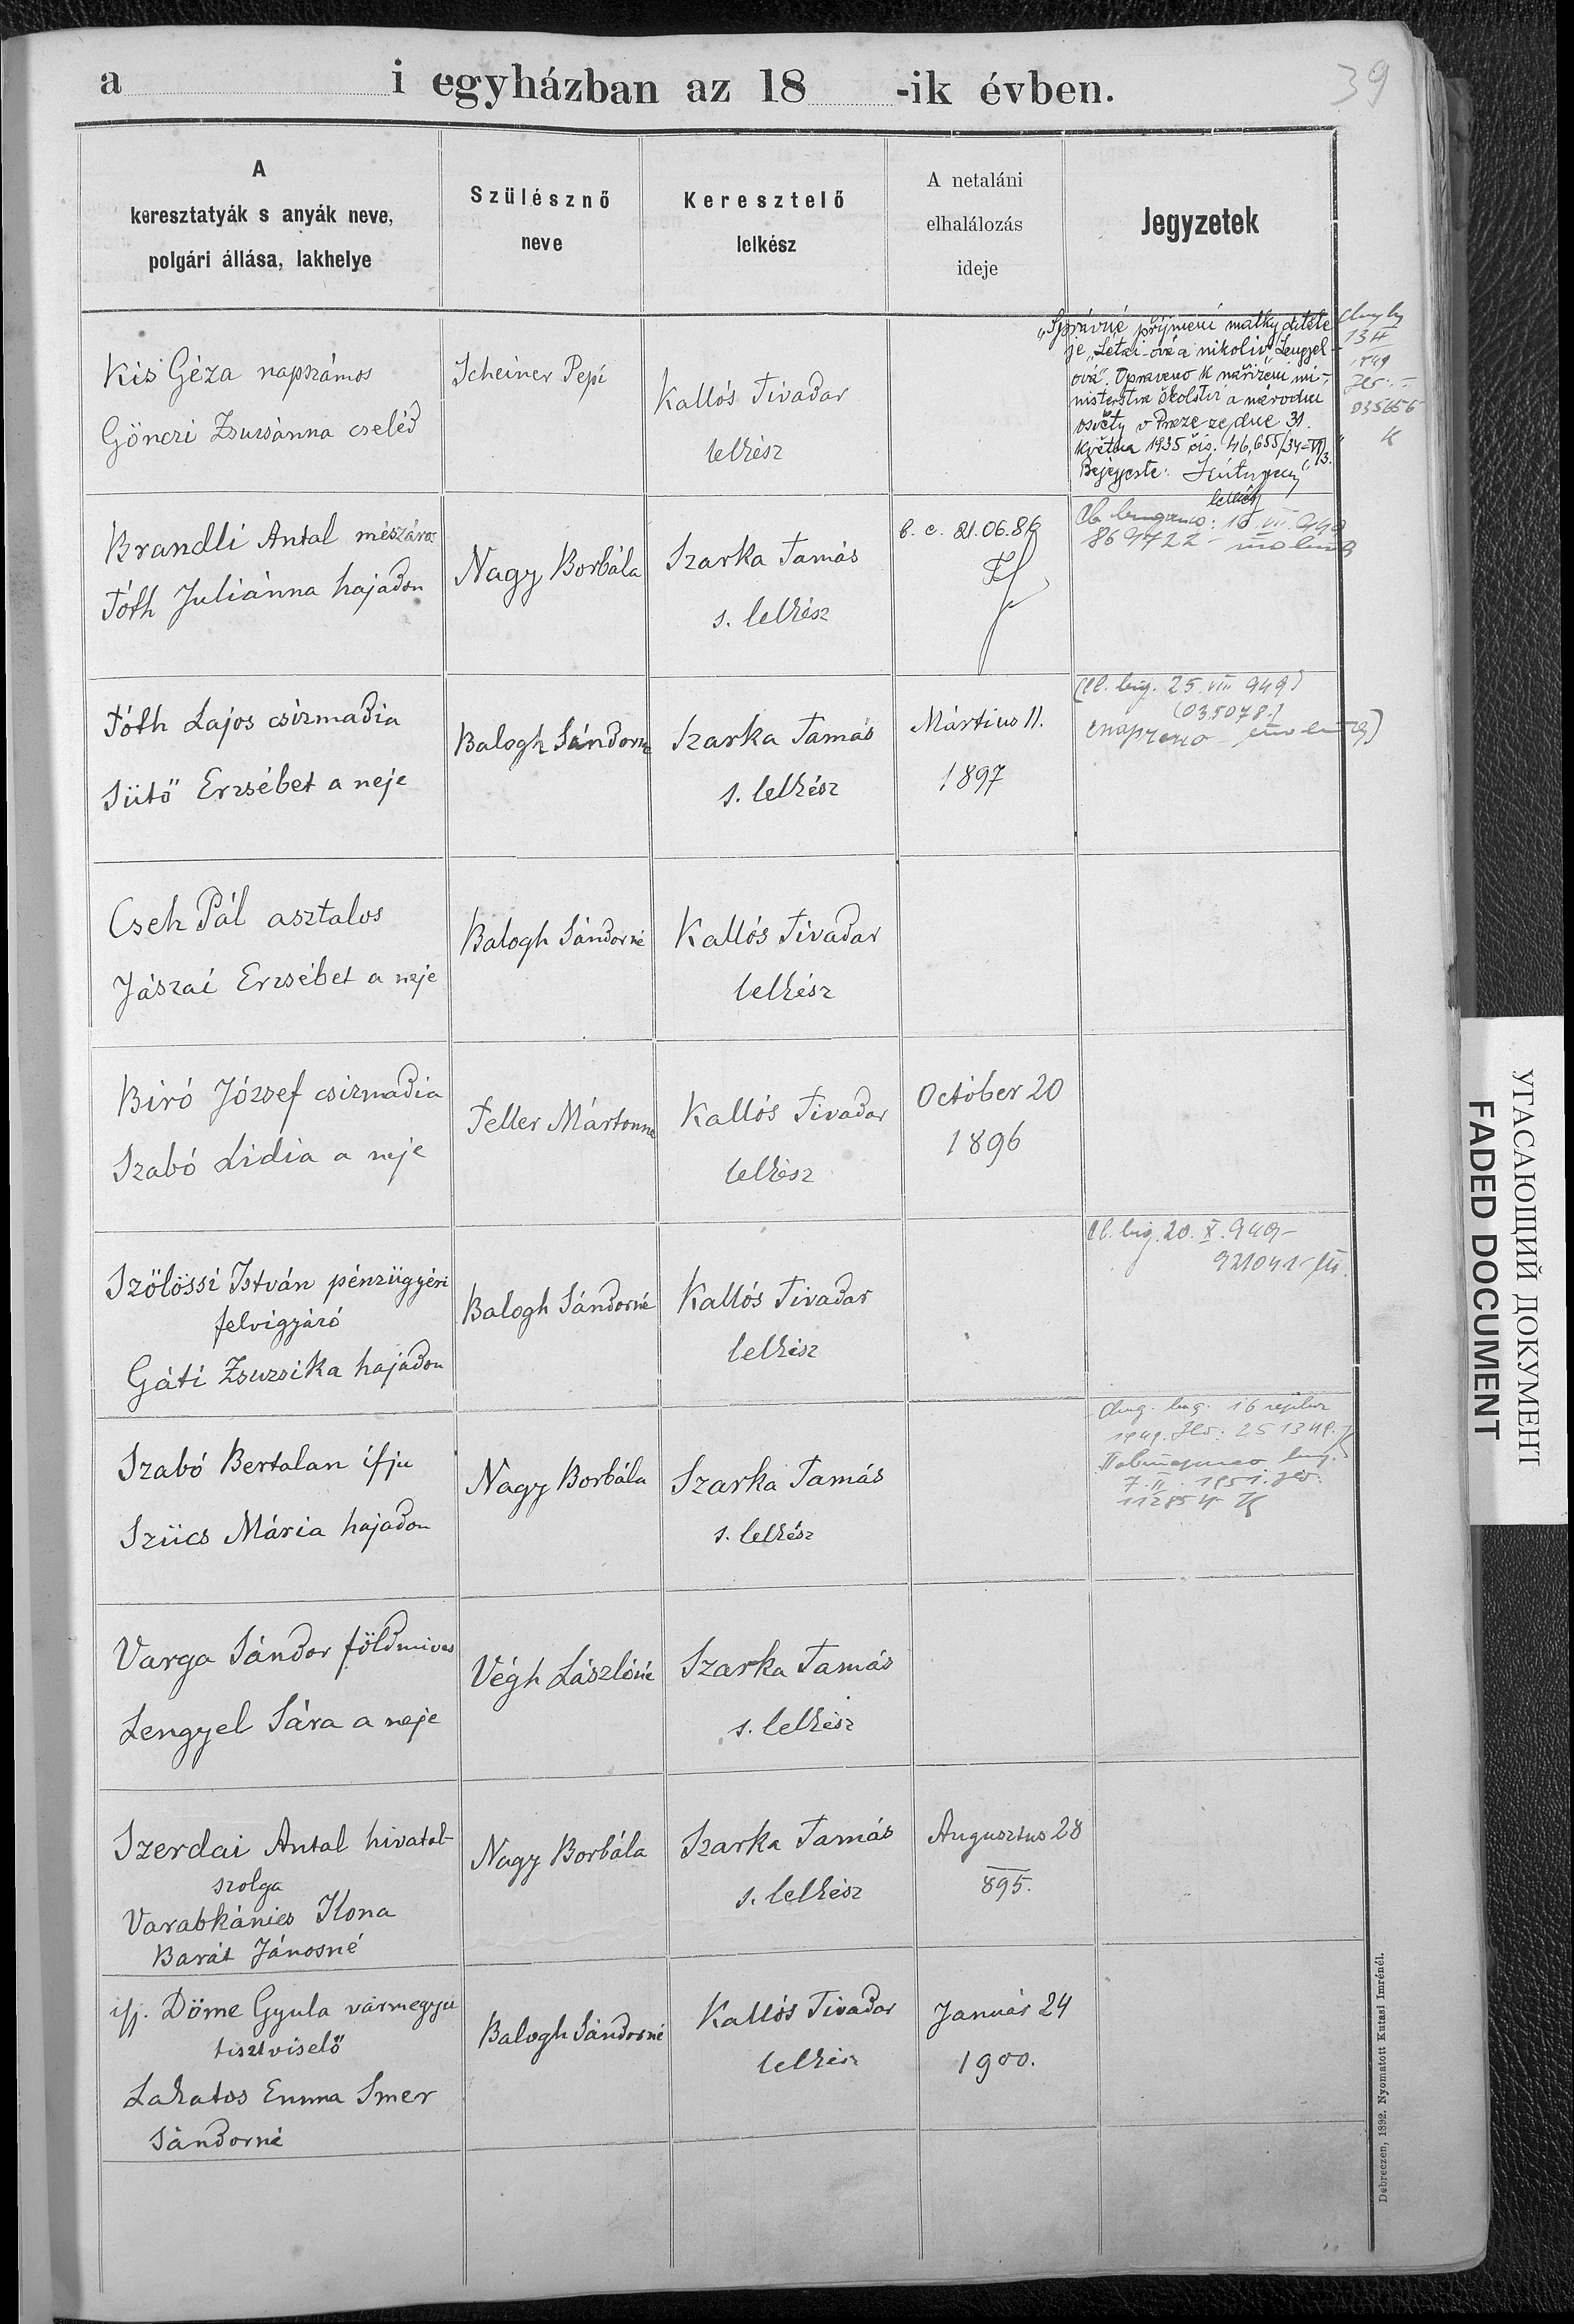 a i egyházban az 18 -ik évben.
39
A
keresztatyák s anyák neve,
polgári állása, lakhelye
Szülésznő
neve
Keresztelő
lelkész
A netaláni
elhalálozás
ideje
Jegyzetek
Kis Géza napszámos
Gönczi Zsuzsánna cseléd
Scheiner Pepi
Kallós Tivadar
lelkész
„Správné příjmení matky dítěte
je „Létai-ová a nikoliv „Lengyel-
ová". Opraveno k nařízení mi-
nisterstva školství a národní
osvěty v Praze ze dne 31.
května 1935 čís. 46,655/34-VI/3.
Bejegyezte:
lelkész
1949
035656
K
Brandli Antal mészáros
Tóth Juliánna hajadon
Nagy Borbála
Szarka Tamás
s. lelkész
21.06.
869722
Tóth Lajos csizmadia
Sütő Erzsébet a neje
Balogh Sándorné
Szarka Tamás
s. lelkész
Mártius 11.
1897
25. VII 949
(035078.)
Cseh Pál asztalos
Jászai Erzsébet a neje
Balogh Sándorné
Kallós Tivadar
lelkész
Biró József csizmadia
Szabó Lidia a neje
Feller Mártonné
Kallós Tivadar
lelkész
Octóber 20
1896
Szölössi István pénzügyéri
felvigyázó
Gáti Zsuzsika hajadon
Balogh Sándorné
Kallós Tivadar
lelkész
20. X. 949
Szabó Bertalan ifju
Szücs Mária hajadon
Nagy Borbála
Szarka Tamás
s. lelkész
16
1949. 251349.
7. II. 1951.
Varga Sándor földmives
Lengyel Sára a neje
Végh Lászlóné
Szarka Tamás
s. lelkész
Szerdai Antal hivatal-
szolga
Varabkánics Ilona
Barát Jánosné
Nagy Borbála
Szarka Tamás
s. lelkész
Augusztus 28
895.
ifj. Döme Gyula vármegyei
tisztviselő
Lakatos Emma Imer
Sándorné
Balogh Sándorné
Kallós Tivadar
lelkész
Január 24
1900.
Debreczen, 1892. Nyomatott Kutasi Imrénél.
УГАСАЮЩИЙ ДОКУМЕНТ
FADED DOCUMENT